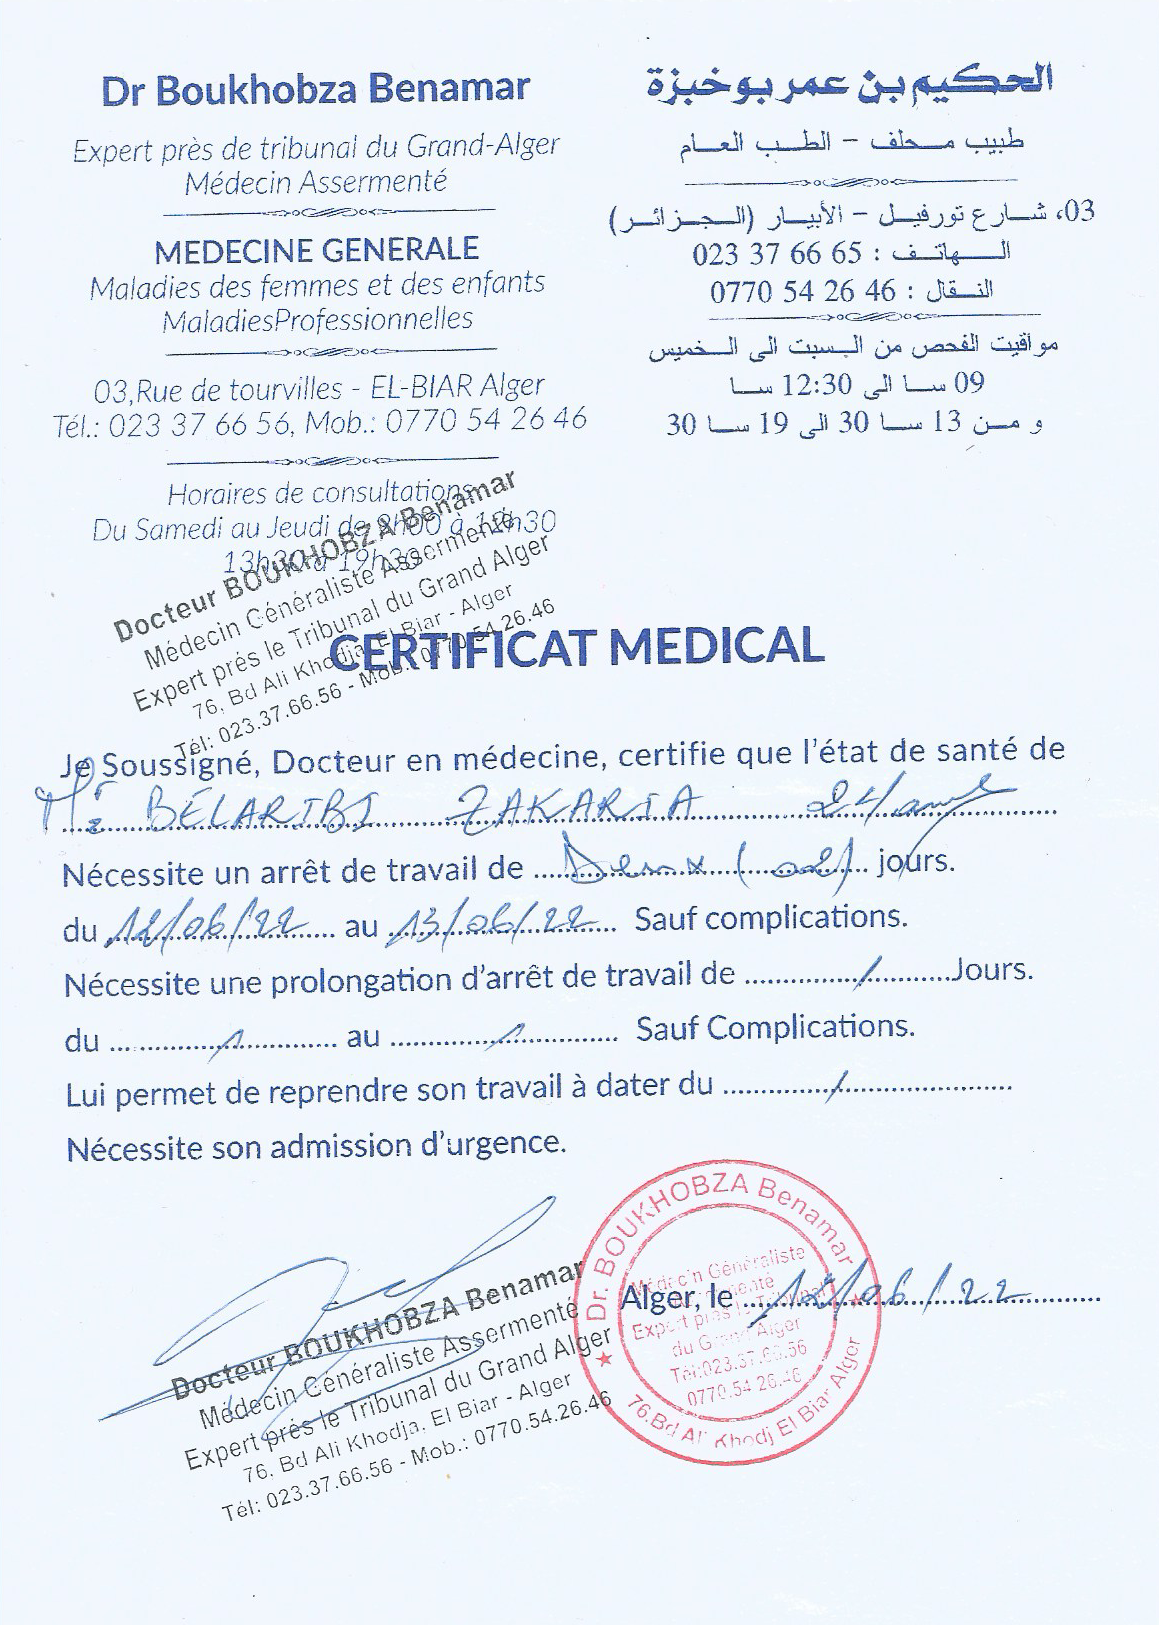 Dr Boukhobza Benamar
Expert près de tribunal du Grand-Alger
Médecin Assermenté
MEDECINE GENERALE
Maladies des femmes et des enfants
MaladiesProfessionnelles
03,Rue de tourvilles - EL-BIAR Alger
Tél.: 023 37 66 56, Mob.: 0770 54 26 46
Horaires de consultations
Du Samedi au Jeudi de 9h00 à 12h30
13h30 à 19h30
الحكيم بن عمر بوخبزة
طبيب محلف - الطب العام
03، شارع تورفيل - الأبيار (الجزائر)
الهاتف : 023 37 66 65
النقال : 0770 54 26 46
مواقيت الفحص من السبت الى الخميس
09 سا الى 12:30 سا
و من 13 سا 30 الى 19 سا 30
Docteur BOUKHOBZA Benamar
Médecin Généraliste Assermenté
Expert prés le Tribunal du Grand Alger
76, Bd Ali Khodja, El Biar - Alger
Tél: 023.37.66.56 - Mob.: 0770.54.26.46
CERTIFICAT MEDICAL
Je Soussigné, Docteur en médecine, certifie que l'état de santé de
Mr BELARIBI ZAKARIA 24 ans
Nécessite un arrêt de travail de Deux (02) jours.
du 12/06/22 au 13/06/22 Sauf complications.
Nécessite une prolongation d'arrêt de travail de / Jours.
du / au / Sauf Complications.
Lui permet de reprendre son travail à dater du /
Nécessite son admission d'urgence.
Alger, le 12/06/22
Docteur BOUKHOBZA Benamar
Médecin Généraliste Assermenté
Expert près le Tribunal du Grand Alger
76, Bd Ali Khodja, El Biar - Alger
Tél: 023.37.66.56 - Mob.: 0770.54.26.46
Dr. BOUKHOBZA Benamar
Médecin Généraliste
Assermenté
Expert près le Tribunal
du Grand Alger
Tél:023.37.66.56
0770.54.26.46
76.Bd Ali Khodj El Biar Alger